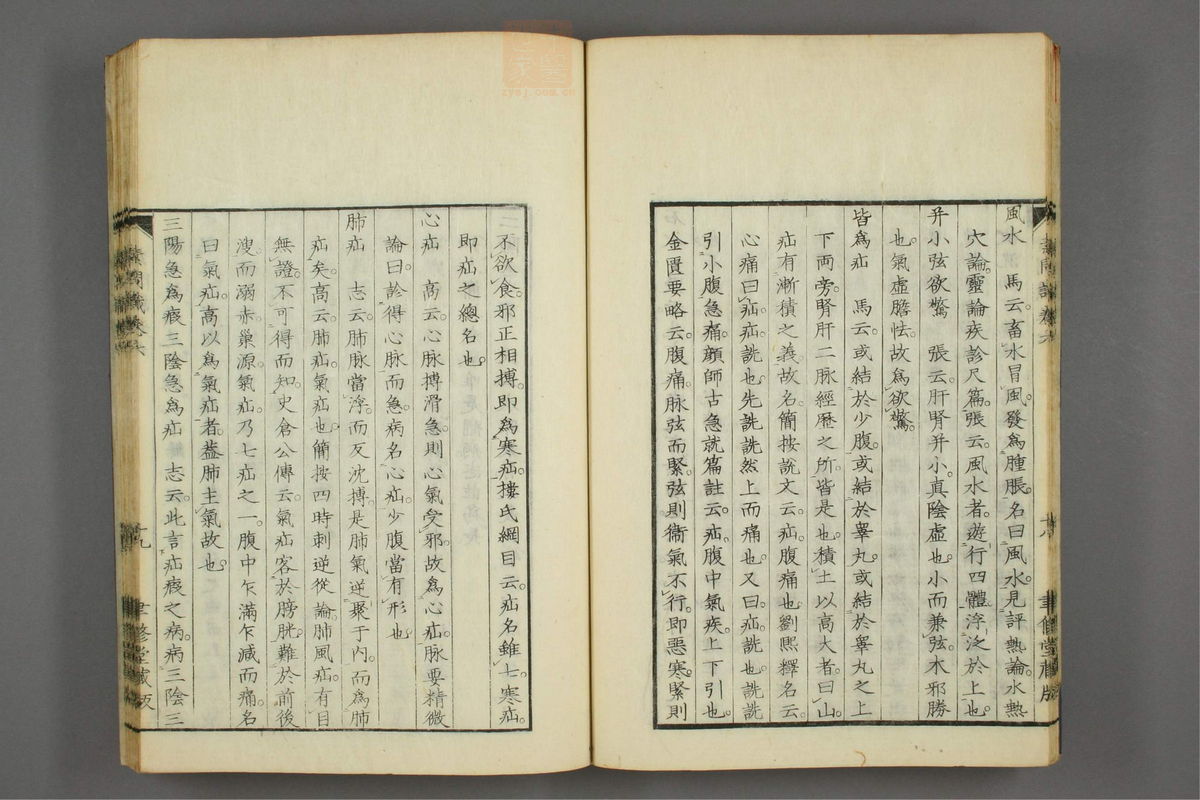 風水　馬云畜水冒風發爲腫脹名曰風水見評熱論水熱
穴論靈論疾診尺篇張云風水者遊行四體浮泛於上也
并小弦欲驚　張云肝腎并小真陰虛也小而兼弦木邪勝
也氣虛膽怯故爲欲驚
皆爲疝　馬云或結於少腹或結於睾丸或結於睾丸之上
下兩旁腎肝二脉經歷之所皆是也積土以高大者曰山
疝有漸積之義故名簡按說文云疝腹痛也劉熙釋名云
心痛曰疝疝詵也先詵詵然上而痛也又曰疝詵也詵詵
引小腹急痛顔師古急就篇註云疝腹中氣疾上下引也
金匱要略云腹痛脉弦而緊弦則衞氣不行即惡寒緊則
不欲食邪正相搏即爲寒疝摟氏綱目云疝名雖七寒疝
即疝之總名也
心疝　高云心脉搏滑急則心氣受邪故爲心疝脉要精微
論曰診得心脉而急病名心疝少腹當有形也
肺疝　志云肺脉當浮而反沈搏是肺氣逆聚于內而爲肺
疝矣高云肺疝氣疝也簡按四時刺逆從論肺風疝有目
無證不可得而知史倉公傳云氣疝客於膀胱難於前後
溲而溺赤巢源氣疝乃七疝之一腹中乍滿乍減而痛名
曰氣疝高以爲氣疝者葢肺主氣故也
三陽急爲瘕三陰急爲疝　志云此言疝瘕之病病三陰三
十九
聿修堂藏版